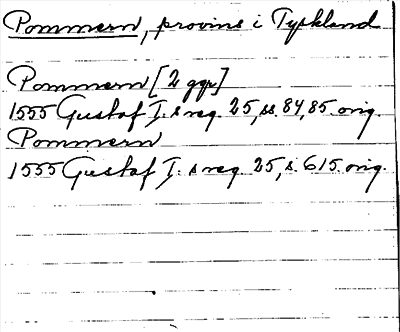 Pommern, provins i Tyskland
Pommern [2 ggr]
1555 Gustaf I:s reg. 25, ss. 84, 85. orig.
Pommern
1555 Gustaf I:s reg. 25, s. 615. orig.